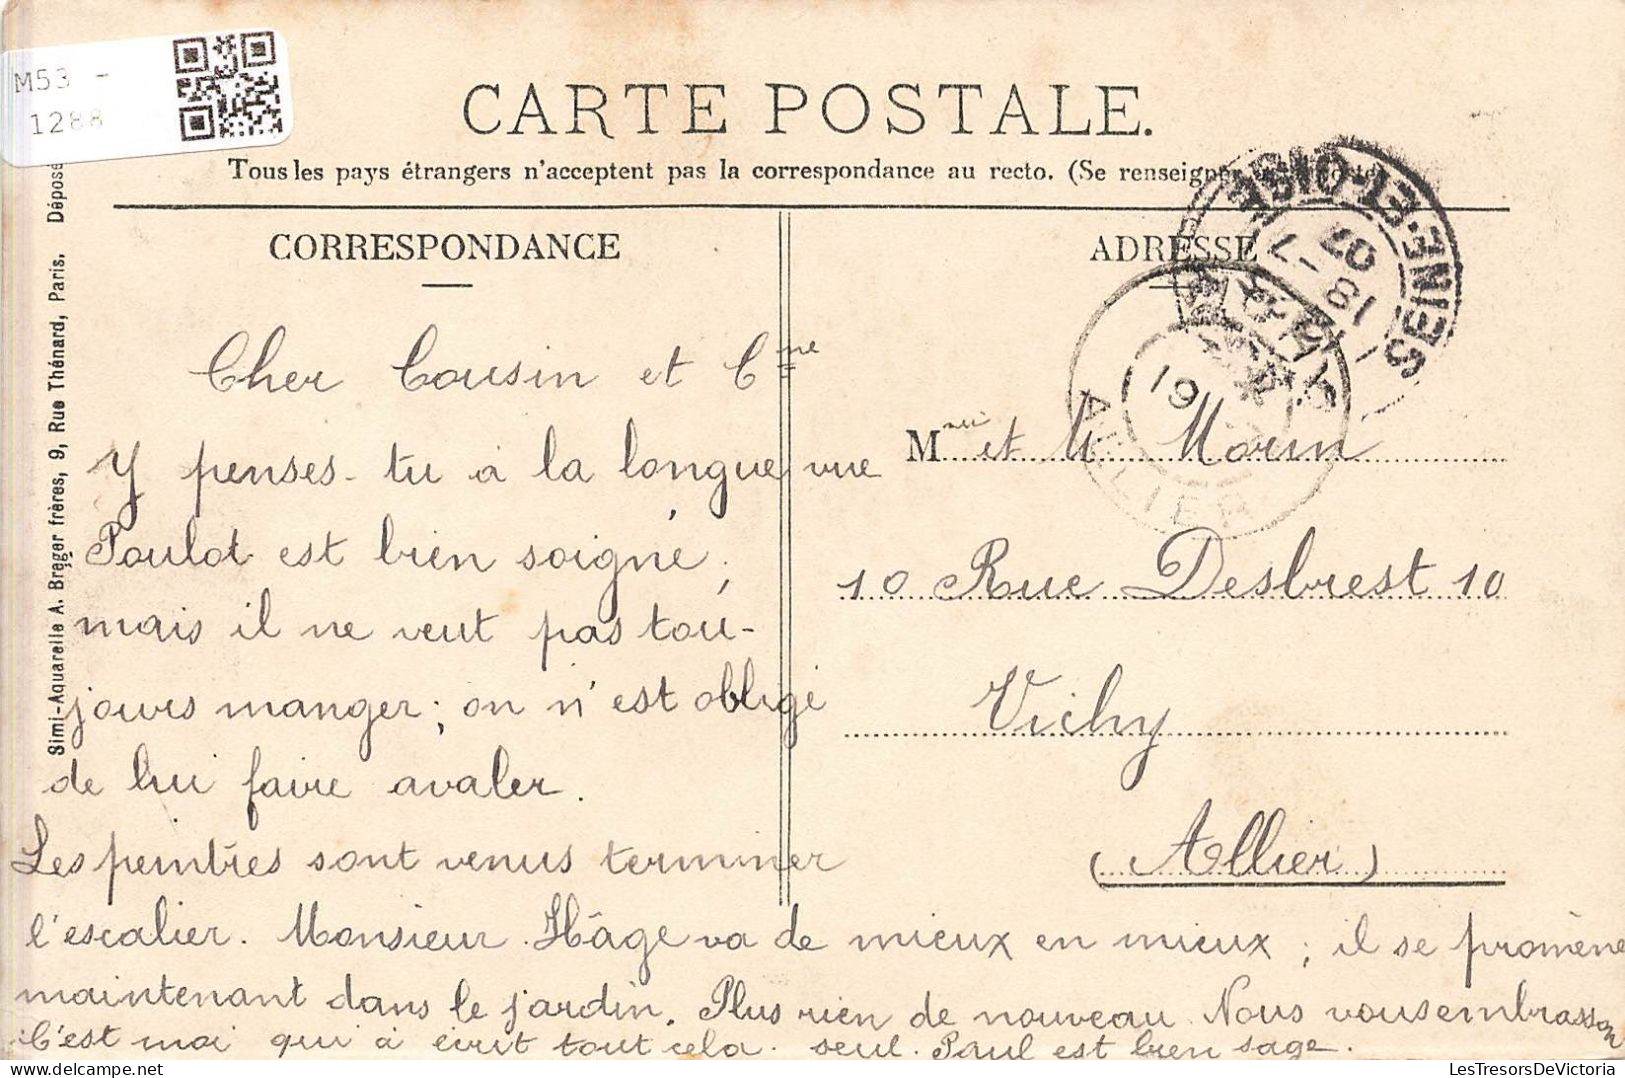 M53 -
1288
CARTE POSTALE.
Tous les pays étrangers n'acceptent pas la correspondance au recto. (Se renseigner
CORRESPONDANCE
ADRESSE
SEINE-ET-OISE
18 -7
07
19
ALLIER
Simi-Aquarelle A. Breger frères, 9, Rue Thénard, Paris. Déposé
Cher Cousin et Cne
Y penses-tu à la longue vue
Poulot est bien soigné;
mais il ne veut pas tou-
jours manger; on n'est obligé
de lui faire avaler.
Les peintres sont venus terminer
l'escalier. Monsieur Hâge va de mieux en mieux; il se promène
maintenant dans le jardin. Plus rien de nouveau. Nous vous embrassons
C'est moi qui a écrit tout cela seul. Paul est bien sage.
M et M Morin
10 Rue Desbrest 10
Vichy
(Allier)
LesTresorsDeVictoria.com